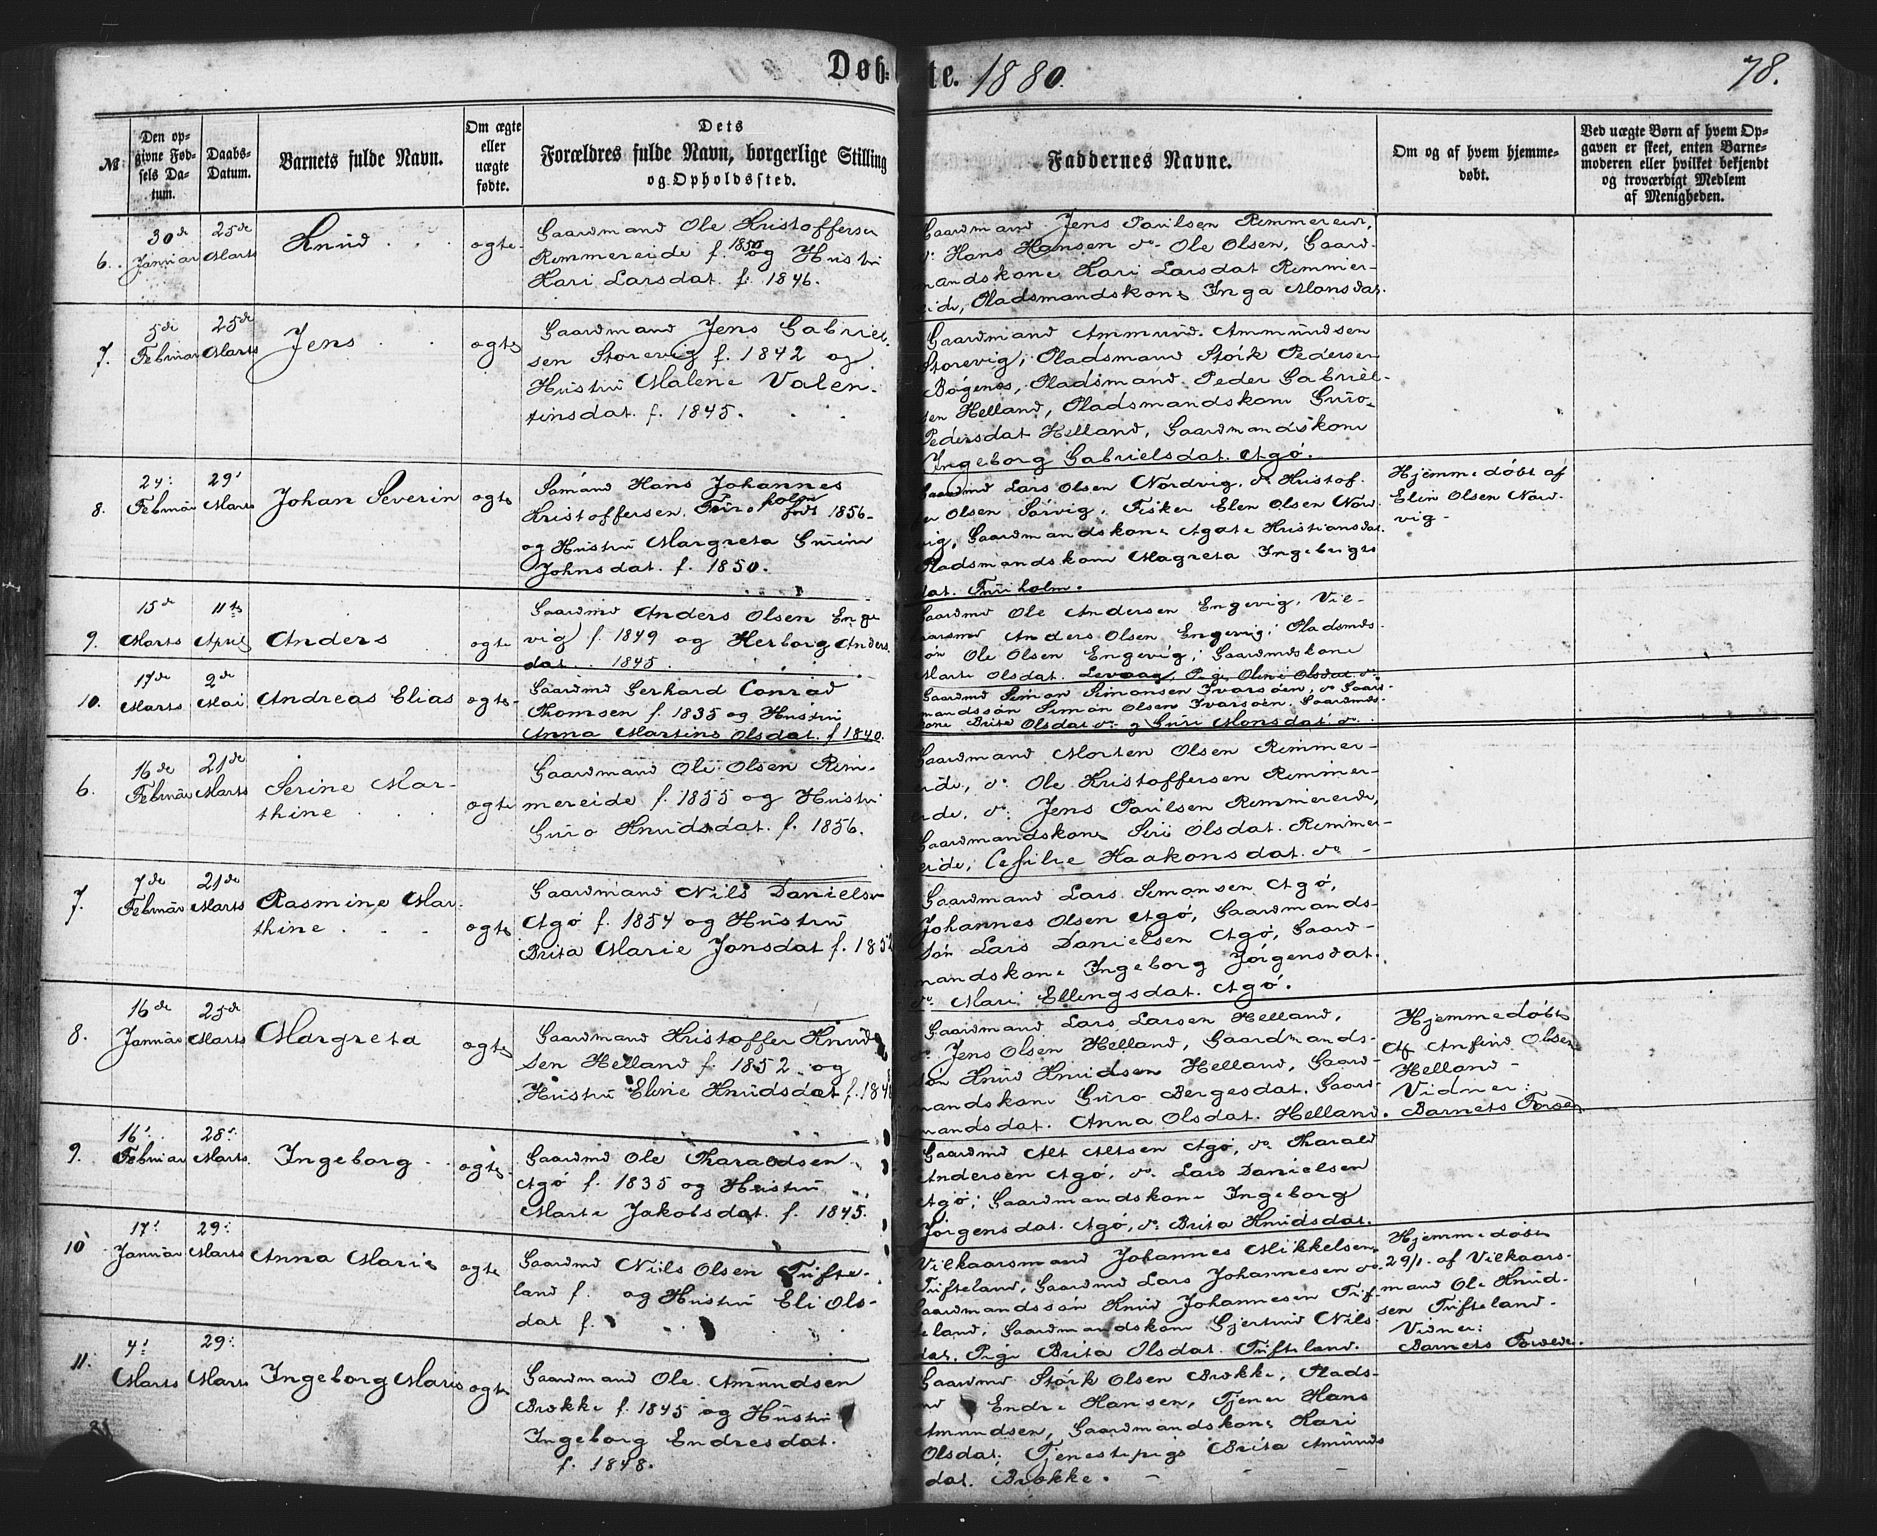 Døbte. 1880. 78.
№
Den opgivne Fødsels Datum.
Daabs-Datum.
Barnets fulde Navn.
Om ægte eller uægte fødte.
Dets
Forældres fulde Navn, borgerlige Stilling
og Opholdssted.
Faddernes Navne.
Om og af hvem hjemmedøbt.
Ved uægte Børn af hvem Opgaven er skeet, enten Barnemoderen eller hvilket bekjendt og troværdigt Medlem af Menigheden.
6. 30de Januar 25de Marts Knud ægte
Gaardmand Ole Kristoffersen
Remmereide f. 1850 og Hustru
Kari Larsdat. f. 1846.
Gaardmand Jens Paulsen Remmereide,
do Hans Hansen do Ole Olsen, Gaard-
mandskone Kari Larsdat Remmer-
eide, Pladsmandskone Inga Monsdat.
7. 5de Februar 25de Marts Jens ægte
Gaardmand Jens Gabriel-
sen Storevig f. 1842 og
Hustru Malene Valen-
tinsdat. f. 1845.
Gaardmand Ammund Ammundsen
Storevig, Pladsmand Störk Pedersen
Bögenes, Pladsmand Peder Gabriel-
sen Helland, Pladsmandskone Guro
Pedersdat Helland, Gaardmandskone
Ingeborg Gabrielsdat. Agö.
8. 24: Februar 29' Marts Johan Severin ægte
Sömand Hans Johannes
Kristoffersen Furuholm født 1856
og Hustru Margreta Gurine
Johnsdat. f. 1850.
Gaardmd Lars Olsen Nordvig, do Kristof-
fer Olsen Sörvig, Fisker Elen Olsen Nord-
vig, Gaardmandskone Agate Kristiansdat.
Pladsmandskone Magreta Ingebrigts
dat. Furuholm.
Hjemmedöbt af
Elin Olsen Nord-
vig
9. 15de Marts 11te April Anders ægte
Gaardmd Anders Olsen Enge
vig f. 1849 og Herborg Anders
dat. 1845.
Gaardmd Ole Andersen Engevig, Vil-
kaarsmd Anders Olsen Engevig, Pladsmds-
sön Ole Olsen Engevig, Gaardmdskone
Marte Olsdat. Levaag, Pige Oline Olsdat do
10. 17de Marts 2de Mai Andreas Elias ægte
Gaardmd Gerhard Conrad
Thomsen f. 1835 og Hustru
Anna Martine Olsdat. f 1840.
Gaardmd Simon Simonsen Ivarsöen, do Gaard-
mandssön Simon Olsen Ivarsöen, Gaardmds-
kone Brite Olsdat do og Guri Monsdat do
6. 16de Februar 21de Marts Serine Mar-
thine ægte
Gaardmand Ole Olsen Rem-
mereide f. 1855 og Hustru
Guro Knudsdat. f. 1856.
Gaardmand Morten Olsen Remmer-
eide, do Ole Kristoffersen Remmer-
eide, do Jens Paulsen Remmereide,
Gaardmandskone Siri Olsdat. Remmer-
eide, Cesilie Haakonsdat. do
7. 7de Februar 21de Marts Rasmine Mar-
thine ægte
Gaardmand Nils Danielsen
Agö f. 1854 og Hustru
Brita Marie Jonsdat f. 1852
Gaardmand Lars Simonsen Agö,
Johannes Olsen Agö, Gaardmands-
sön Lars Danielsen Agö, Gaard-
mandskone Ingeborg Jörgensdat.
do Mari Ellingsdat. Agö.
8. 16de Januar 25de Marts Margreta ægte
Gaardmand Kristoffer Knud
sen Helland f. 1852 og
Hustru Eline Knudsdat f. 184
Gaardmand Lars Larsen Helland,
do Jens Olsen Helland, Gaardmands-
sön Knud Knudsen Helland, Gaard-
mandskone Guro Bergesdat. Gaard-
mandsdat. Anna Olsdat. Helland.
Hjemmedöbt
Af Anfind Olsen
Helland
Vidner:
Barnets Foræ
9. 16' Februar 28' Marts Ingeborg ægte
Gaardmd Ole Tharaldsen
Agö f. 1835 og Hustru
Marte Jakobsdat. f. 1845.
Gaardmd Alt Altsen Agö, do Tharald
Andersen Agö, do Lars Danielsen
Agö; Gaardmandskone Ingeborg
Jörgensdat. Agö, do Brita Knudsdat.
10 17' Januar 29: Marts Anna Marie ægte
Gaardmd Nils Olsen Tufte-
land f. og Hustru Eli Ols-
dat f.
Vilkaarsmand Johannes Mikkelsen
Tufteland, Gaardmd Lars Johannesen do
Gaardmandssön Knud Johannesen Tuf-
teland, Gaardmandskone Gjertrud Nils
dat. Pige Brita Olsdat. Tufteland.
Hjemmedöbt
29/1. af Vilkaars-
mand Ole Knud-
sen Tufteland.
Vidner:
Barnets Forældre.
11. 4' Marts 29: Marts Ingeborg Marie ægte
Gaardmand Ole Amundsen
Brække f. 1845 og Hustru
Ingeborg Endresdat.
f. 1848.
Gaardmd Störk Olsen Brække, Plads-
md Endre Hansen, Tjener Hans
Amundsen, Gaardmandskone Kari
Olsdat, Tjenestepige Brita Amunds
dat. Brække.